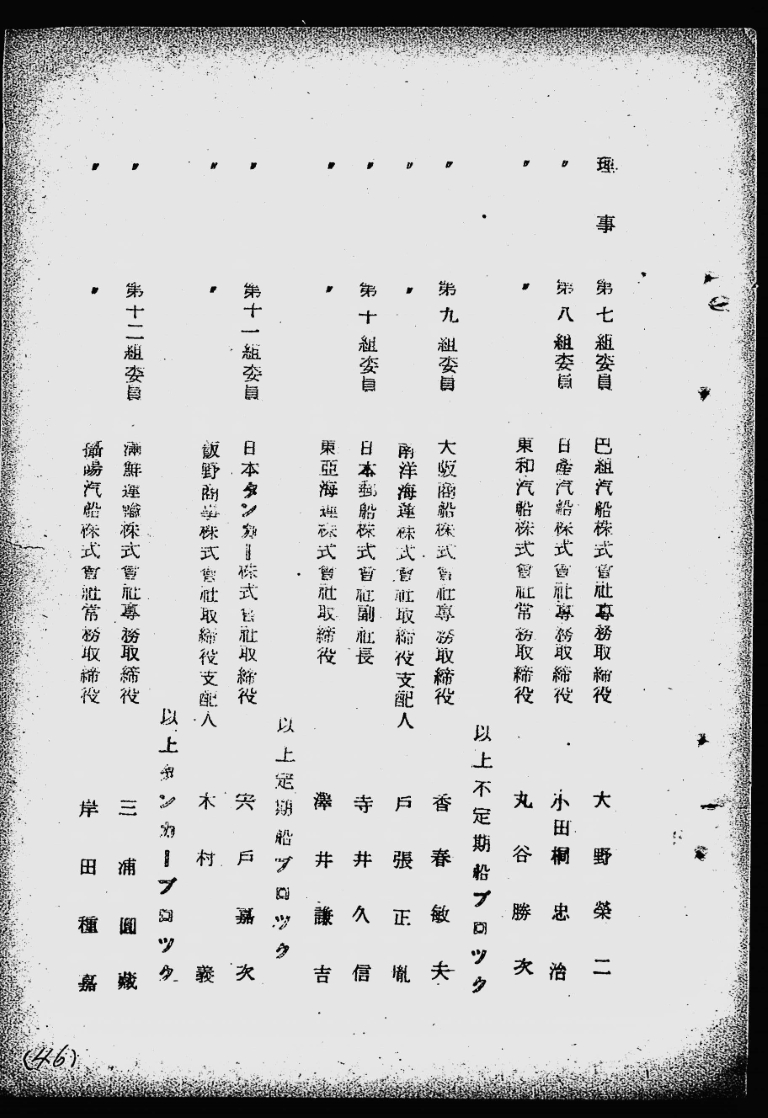 理事 第七組委員 巴組汽船株式會社專務取締役 大野榮二
〃 第八組委員 日產汽船株式會社專務取締役 小田桐忠治
〃 〃 東和汽船株式會社常務取締役 丸谷勝次
以上不定期船ブロツク
〃 第九組委員 大阪商船株式會社專務取締役 香春敏夫
〃 〃 南洋海運株式會社取締役支配人 戶張正胤
〃 第十組委員 日本郵船株式會社副社長 寺井久信
〃 〃 東亞海運株式會社取締役 澤井謙吉
以上定期船ブロツク
〃 第十一組委員 日本タンカー株式會社取締役 宍戶嘉次
〃 〃 飯野商事株式會社取締役支配人 木村義
以上タンカーブロツク
〃 第十二組委員 滿鮮運輸株式會社專務取締役 三浦圓藏
〃 〃 攝陽汽船株式會社常務取締役 岸田種嘉
(46)